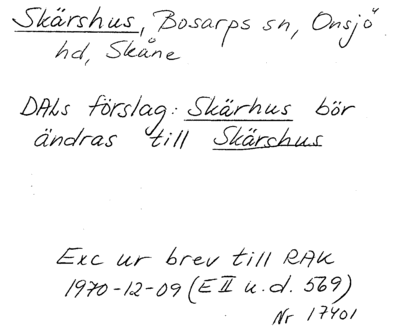 Skärshus, Bosarps sn, Onsjö
hd, Skåne
DALs förslag: Skärhus bör
ändras till Skärshus
Exc ur brev till RAK
1970-12-09 (E II u.d. 569)
Nr 17401